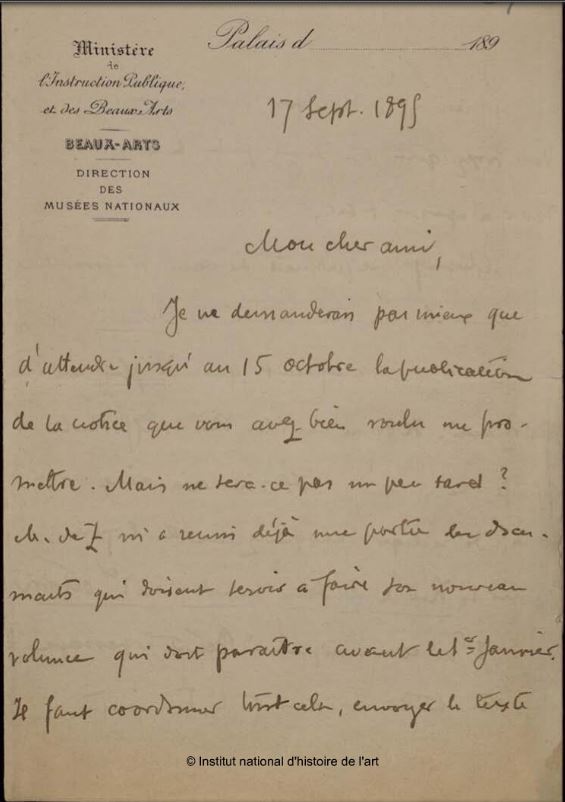 Ministère
de
l'Instruction Publique,
et des Beaux-Arts
BEAUX-ARTS
DIRECTION
DES
MUSÉES NATIONAUX
Palais d 189
17 Sept. 1895
Mon cher ami,
Je ne demanderais pas mieux que
d'attendre jusqu'au 15 octobre la publication
de la notice que vous avez bien voulu me pro-
mettre. Mais ne sera-ce pas un peu tard ?
M. de Z m'a remis déjà une partie des docu-
ments qui doivent servir à faire son nouveau
volume qui doit paraître avant le 1er Janvier.
Il faut coordonner tout cela, envoyer le texte
© Institut national d'histoire de l'art